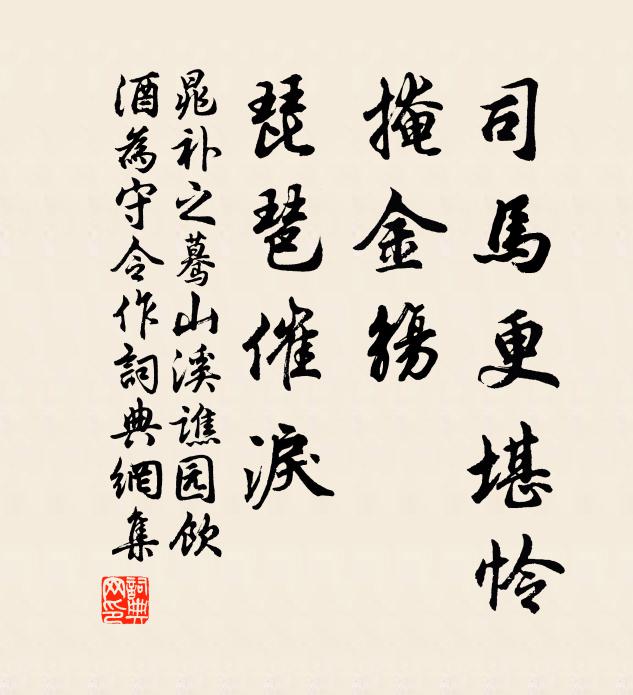 司馬更堪怜
掩金觴
琵琶催淚
晁补之驀山溪譙园飲
酒為守令作詞典網集
詞典
网印